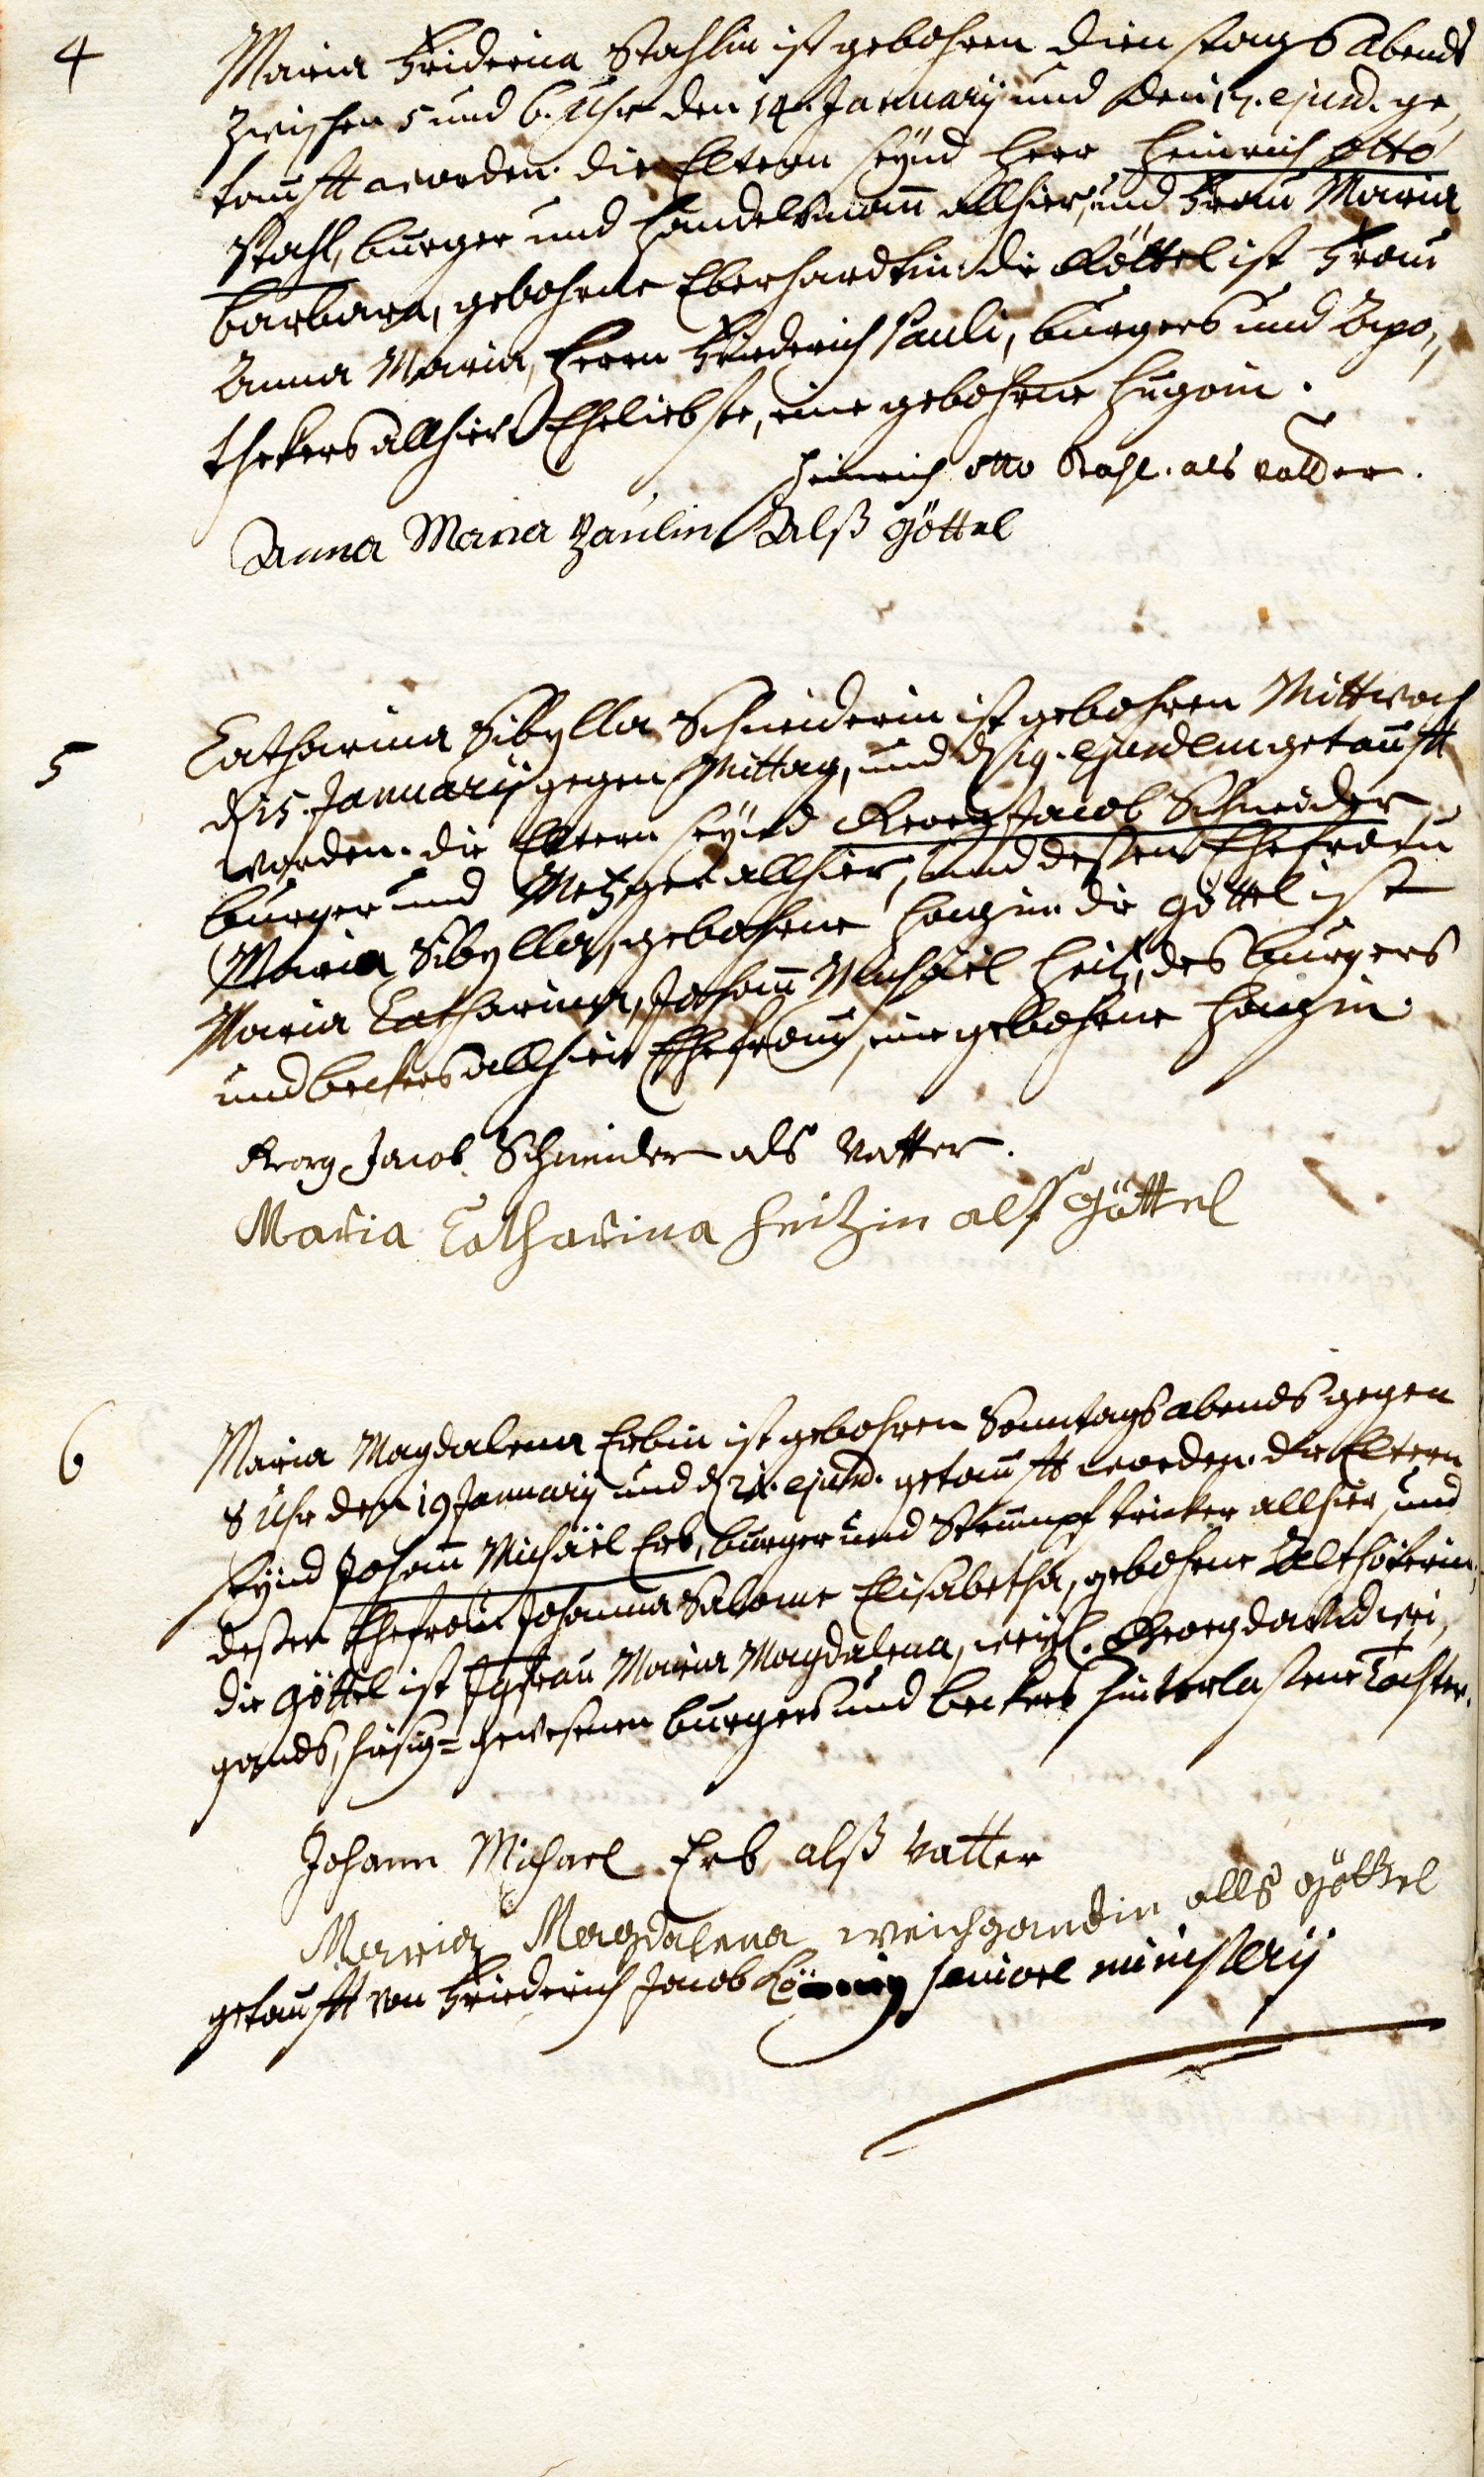 4
Maria Friderica Stahlin ist gebohren Dienstags Abends
zwischen 5 und 6. Uhr den 14. January und den 17. ejusd. ge„
taufft worden. die Eltern seynd Herr Heinrich Otto
Stahl, burger und Handelsmann allhier, und Frau Maria
Barbara, gebohrne Eberhardtin. die Göttel ist Frau
Anna Maria, Herrn Friederich Pauli, burgers und Apo„
thekers allhier Eheliebste, eine gebohrne Hugoin.
Heinrich Otto Stahl. als vatder.
Anna Maria Paulin Alß göttel
5
Catharina Sibylla Schneiderin ist gebohren Mittwoch
d. 15. January gegen Mittag, und d. 19. ejusdem getaufft
worden. die Eltern seynd Georg Jacob Schneider,
burger und Metzger allhier, und dessen Ehefrau
Maria Sibylla, gebohrne. die göttel ist
Maria Catharina, Johann Michäel Heitz, des burgers
und beckers allhier Ehefrau, eine gebohrne
Georg Jacob Schneider als Vatter.
Maria Catharina Heitzin alß Göttel
6
Maria Magdalena Erbin ist gebohren Sonntags abends gegen
8 Uhr den 19 January und d. 21. ejusd. getaufft worden. die Eltern
seynd Johann Michäel Erb, burger und Strumpfstricker allhier, und
dessen Ehefrau Johanna Salome Elisabetha, gebohrne
die göttel ist Jgfrau Maria Magdalena, weyl. Georg David Wei„
gands, hiesig=gewesenen burgers und beckers hinterlassene Tochter.
Johann Michael Erb alß Vatter
Maria Magdalena Weichgandin alls göttel
getaufft von Friederich Jacob seniore ministerij